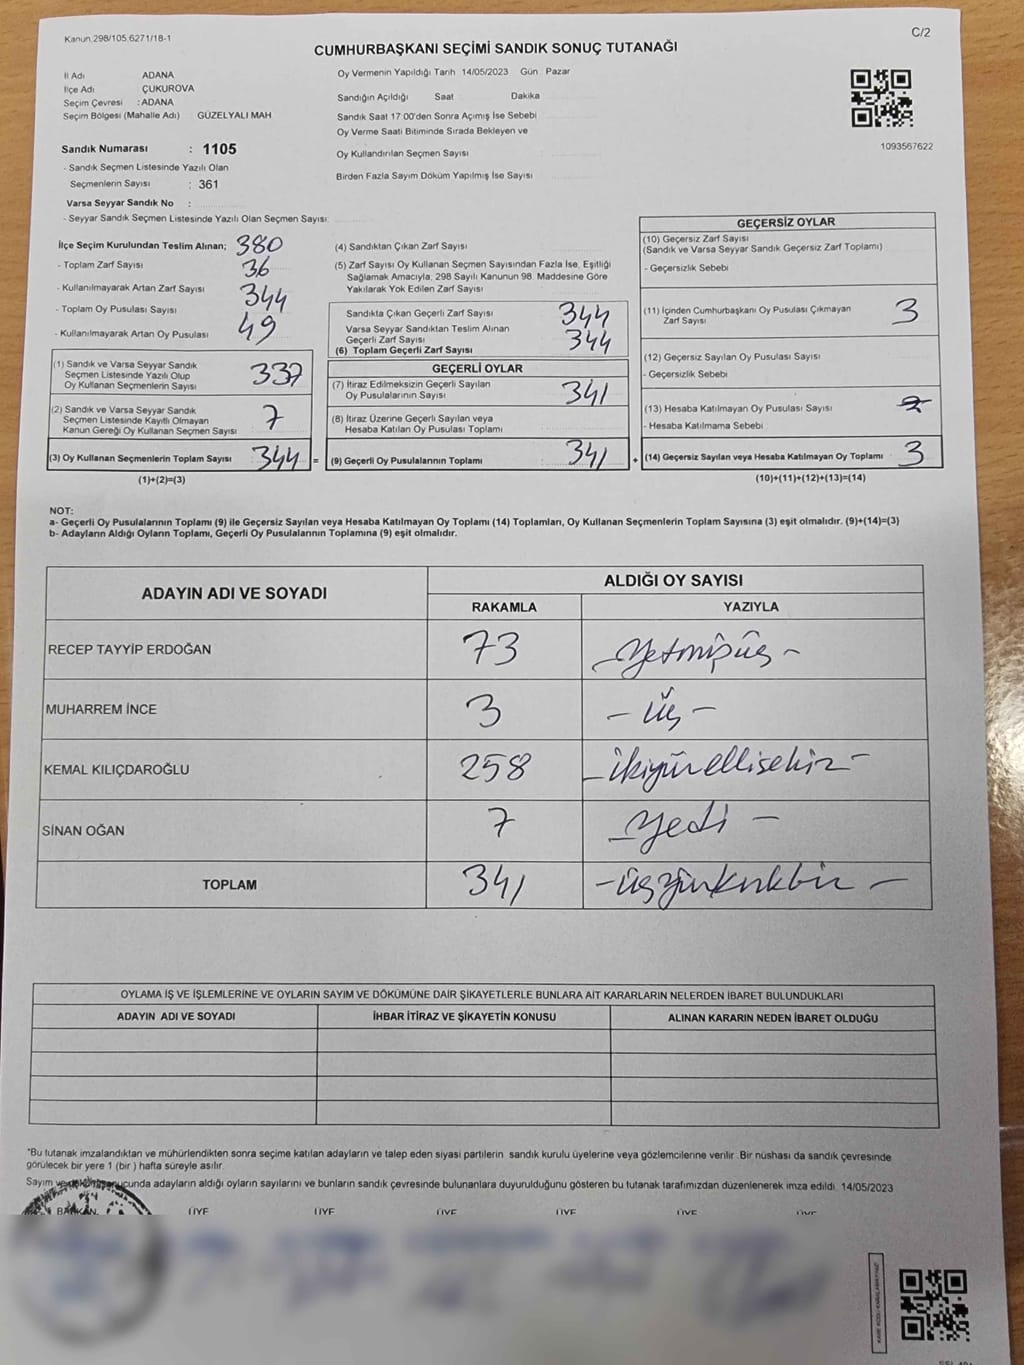 Kanun.298/105.6271/18-1
C/2
CUMHURBAŞKANI SEÇİMİ SANDIK SONUÇ TUTANAĞI
İl Adı ADANA
İlçe Adı ÇUKUROVA
Seçim Çevresi : ADANA
Seçim Bölgesi (Mahalle Adı) GÜZELYALI MAH
Oy Vermenin Yapıldığı Tarih 14/05/2023 Gün : Pazar
Sandığın Açıldığı Saat Dakika
Sandık Saat 17:00'den Sonra Açımış İse Sebebi
Oy Verme Saati Bitiminde Sırada Bekleyen ve
Oy Kullandırılan Seçmen Sayısı
Birden Fazla Sayım Döküm Yapılmış İse Sayısı
1093567622
Sandık Numarası : 1105
- Sandık Seçmen Listesinde Yazılı Olan
Seçmenlerin Sayısı : 361
Varsa Seyyar Sandık No :
- Seyyar Sandık Seçmen Listesinde Yazılı Olan Seçmen Sayısı:
İlçe Seçim Kurulundan Teslim Alınan; 380
- Toplam Zarf Sayısı 36
- Kullanılmayarak Artan Zarf Sayısı 344
- Toplam Oy Pusulası Sayısı
- Kullanılmayarak Artan Oy Pusulası 49
(1) Sandık ve Varsa Seyyar Sandık
Seçmen Listesinde Yazılı Olup
Oy Kullanan Seçmenlerin Sayısı 337
(2) Sandık ve Varsa Seyyar Sandık
Seçmen Listesinde Kayıtlı Olmayan
Kanun Gereği Oy Kullanan Seçmen Sayısı 7
(3) Oy Kullanan Seçmenlerin Toplam Sayısı 344 =
(1)+(2)=(3)
(4) Sandıktan Çıkan Zarf Sayısı
(5) Zarf Sayısı Oy Kullanan Seçmen Sayısından Fazla İse, Eşitliği
Sağlamak Amacıyla, 298 Sayılı Kanunun 98. Maddesine Göre
Yakılarak Yok Edilen Zarf Sayısı
Sandıkta Çıkan Geçerli Zarf Sayısı 344
Varsa Seyyar Sandıktan Teslim Alınan
Geçerli Zarf Sayısı 344
(6) Toplam Geçerli Zarf Sayısı
GEÇERLİ OYLAR
(7) İtiraz Edilmeksizin Geçerli Sayılan
Oy Pusulalarının Sayısı 341
(8) İtiraz Üzerine Geçerli Sayılan veya
Hesaba Katılan Oy Pusulası Toplamı
(9) Geçerli Oy Pusulalarının Toplamı 341 +
GEÇERSİZ OYLAR
(10) Geçersiz Zarf Sayısı
(Sandık ve Varsa Seyyar Sandık Geçersiz Zarf Toplamı)
- Geçersizlik Sebebi
(11) İçinden Cumhurbaşkanı Oy Pusulası Çıkmayan
Zarf Sayısı 3
(12) Geçersiz Sayılan Oy Pusulası Sayısı
- Geçersizlik Sebebi
(13) Hesaba Katılmayan Oy Pusulası Sayısı
- Hesaba Katılmama Sebebi
(14) Geçersiz Sayılan veya Hesaba Katılmayan Oy Toplamı 3
(10)+(11)+(12)+(13)=(14)
NOT:
a- Geçerli Oy Pusulalarının Toplamı (9) ile Geçersiz Sayılan veya Hesaba Katılmayan Oy Toplamı (14) Toplamları, Oy Kullanan Seçmenlerin Toplam Sayısına (3) eşit olmalıdır. (9)+(14)=(3)
b- Adayların Aldığı Oyların Toplamı, Geçerli Oy Pusulalarının Toplamına (9) eşit olmalıdır.
ADAYIN ADI VE SOYADI
ALDIĞI OY SAYISI
RAKAMLA YAZIYLA
RECEP TAYYİP ERDOĞAN 73 Yetmişüç -
MUHARREM İNCE 3 - Üç -
KEMAL KILIÇDAROĞLU 258 - ikiyüzellisekiz -
SİNAN OĞAN 7 - Yedi -
TOPLAM 341 - üçyüzkırkbir -
OYLAMA İŞ VE İŞLEMLERİNE VE OYLARIN SAYIM VE DÖKÜMÜNE DAİR ŞİKAYETLERLE BUNLARA AİT KARARLARIN NELERDEN İBARET BULUNDUKLARI
ADAYIN ADI VE SOYADI İHBAR İTİRAZ VE ŞİKAYETİN KONUSU ALINAN KARARIN NEDEN İBARET OLDUĞU
*Bu tutanak imzalandıktan ve mühürlendikten sonra seçime katılan adayların ve talep eden siyasi partilerin sandık kurulu üyelerine veya gözlemcilerine verilir. Bir nüshası da sandık çevresinde
görülecek bir yere 1 (bir ) hafta süreyle asılır.
Sayım adayların aldığı oyların sayılarını ve bunların sandık çevresinde bulunanlara duyurulduğunu gösteren bu tutanak tarafımızdan düzenlenerek imza edildi. 14/05/2023
BAŞKAN ÜYE ÜYE ÜYE ÜYE ÜYE ÜYE